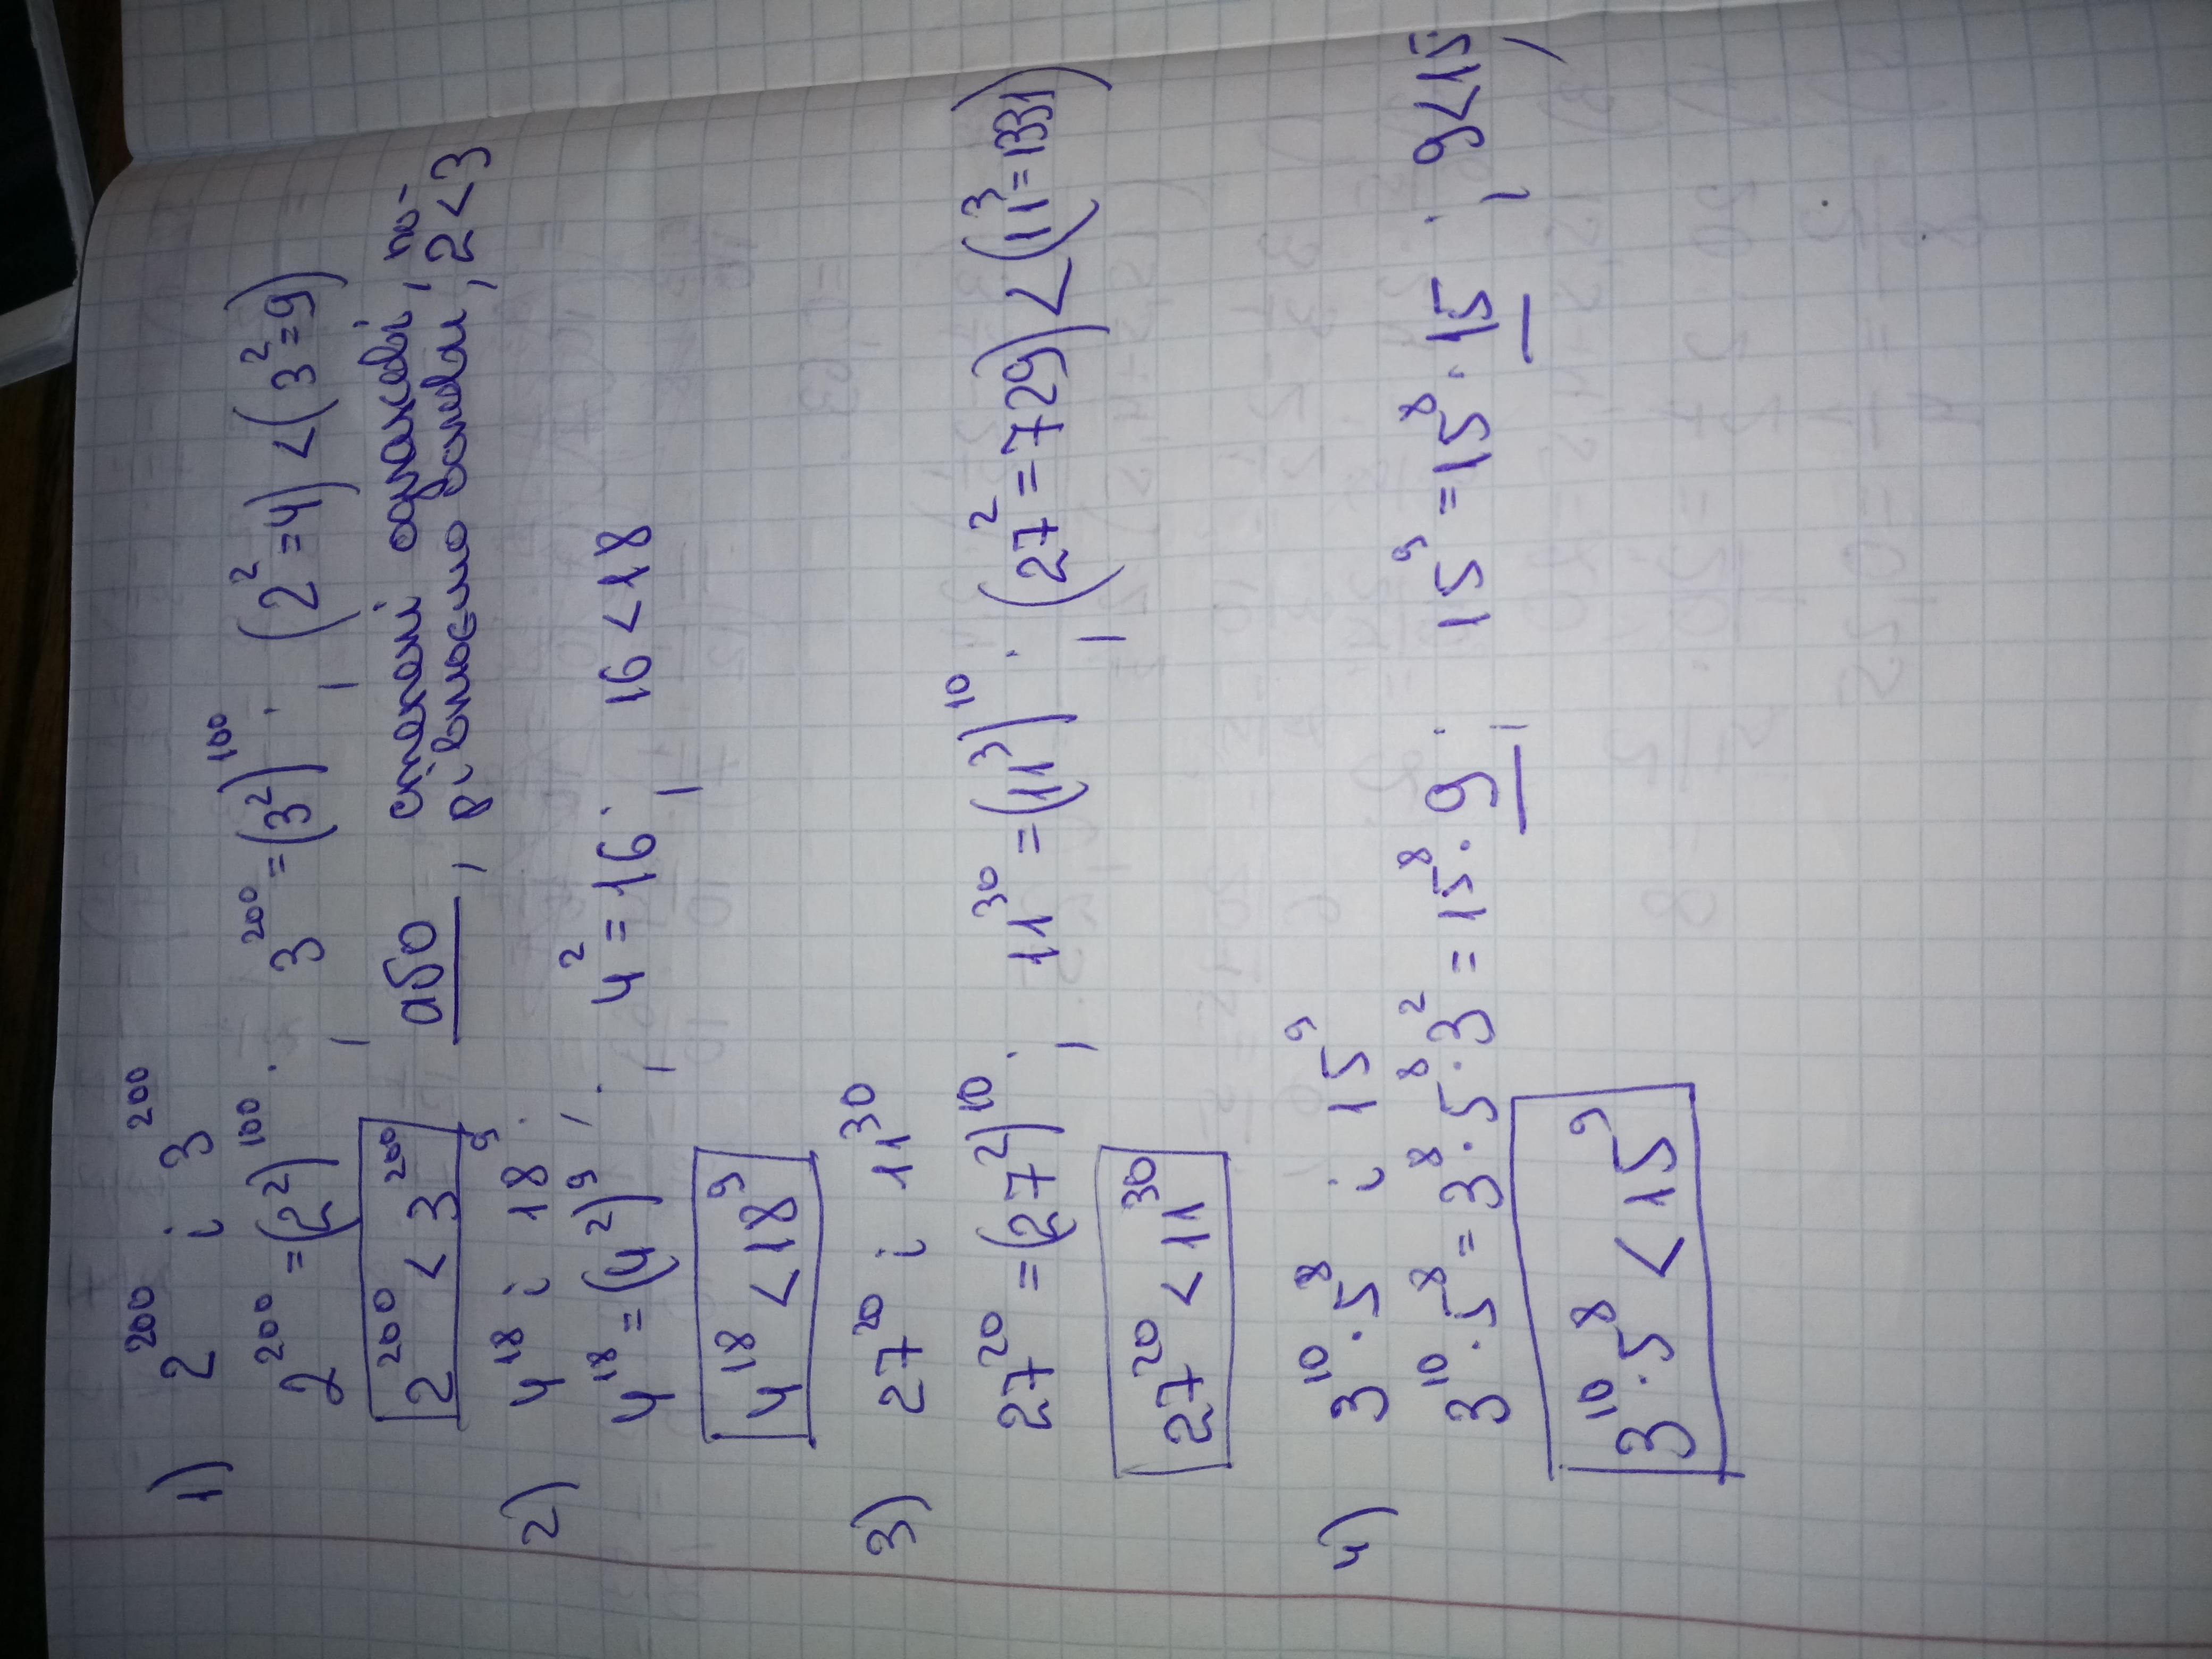 1) 2²⁰⁰ і 3²⁰⁰
2²⁰⁰ = (2²)¹⁰⁰; 3²⁰⁰ = (3²)¹⁰⁰; (2² = 4) < (3² = 9)
2²⁰⁰ < 3²⁰⁰ або, степені однакові, по-
рівнюємо основи, 2 < 3
2) 4¹⁸ і 18⁹;
4¹⁸ = (4²)⁹; 4² = 16; 16 < 18
4¹⁸ < 18⁹
3) 27²⁰ і 11³⁰
27²⁰ = (27²)¹⁰; 11³⁰ = (11³)¹⁰; (27² = 729) < (11³ = 1331)
27²⁰ < 11³⁰
4) 3¹⁰ · 5⁸ і 15⁹
3¹⁰ · 5⁸ = 3⁸ · 5⁸ · 3² = 15⁸ · 9; 15⁹ = 15⁸ · 15; 9 < 15;
3¹⁰ · 5⁸ < 15⁹